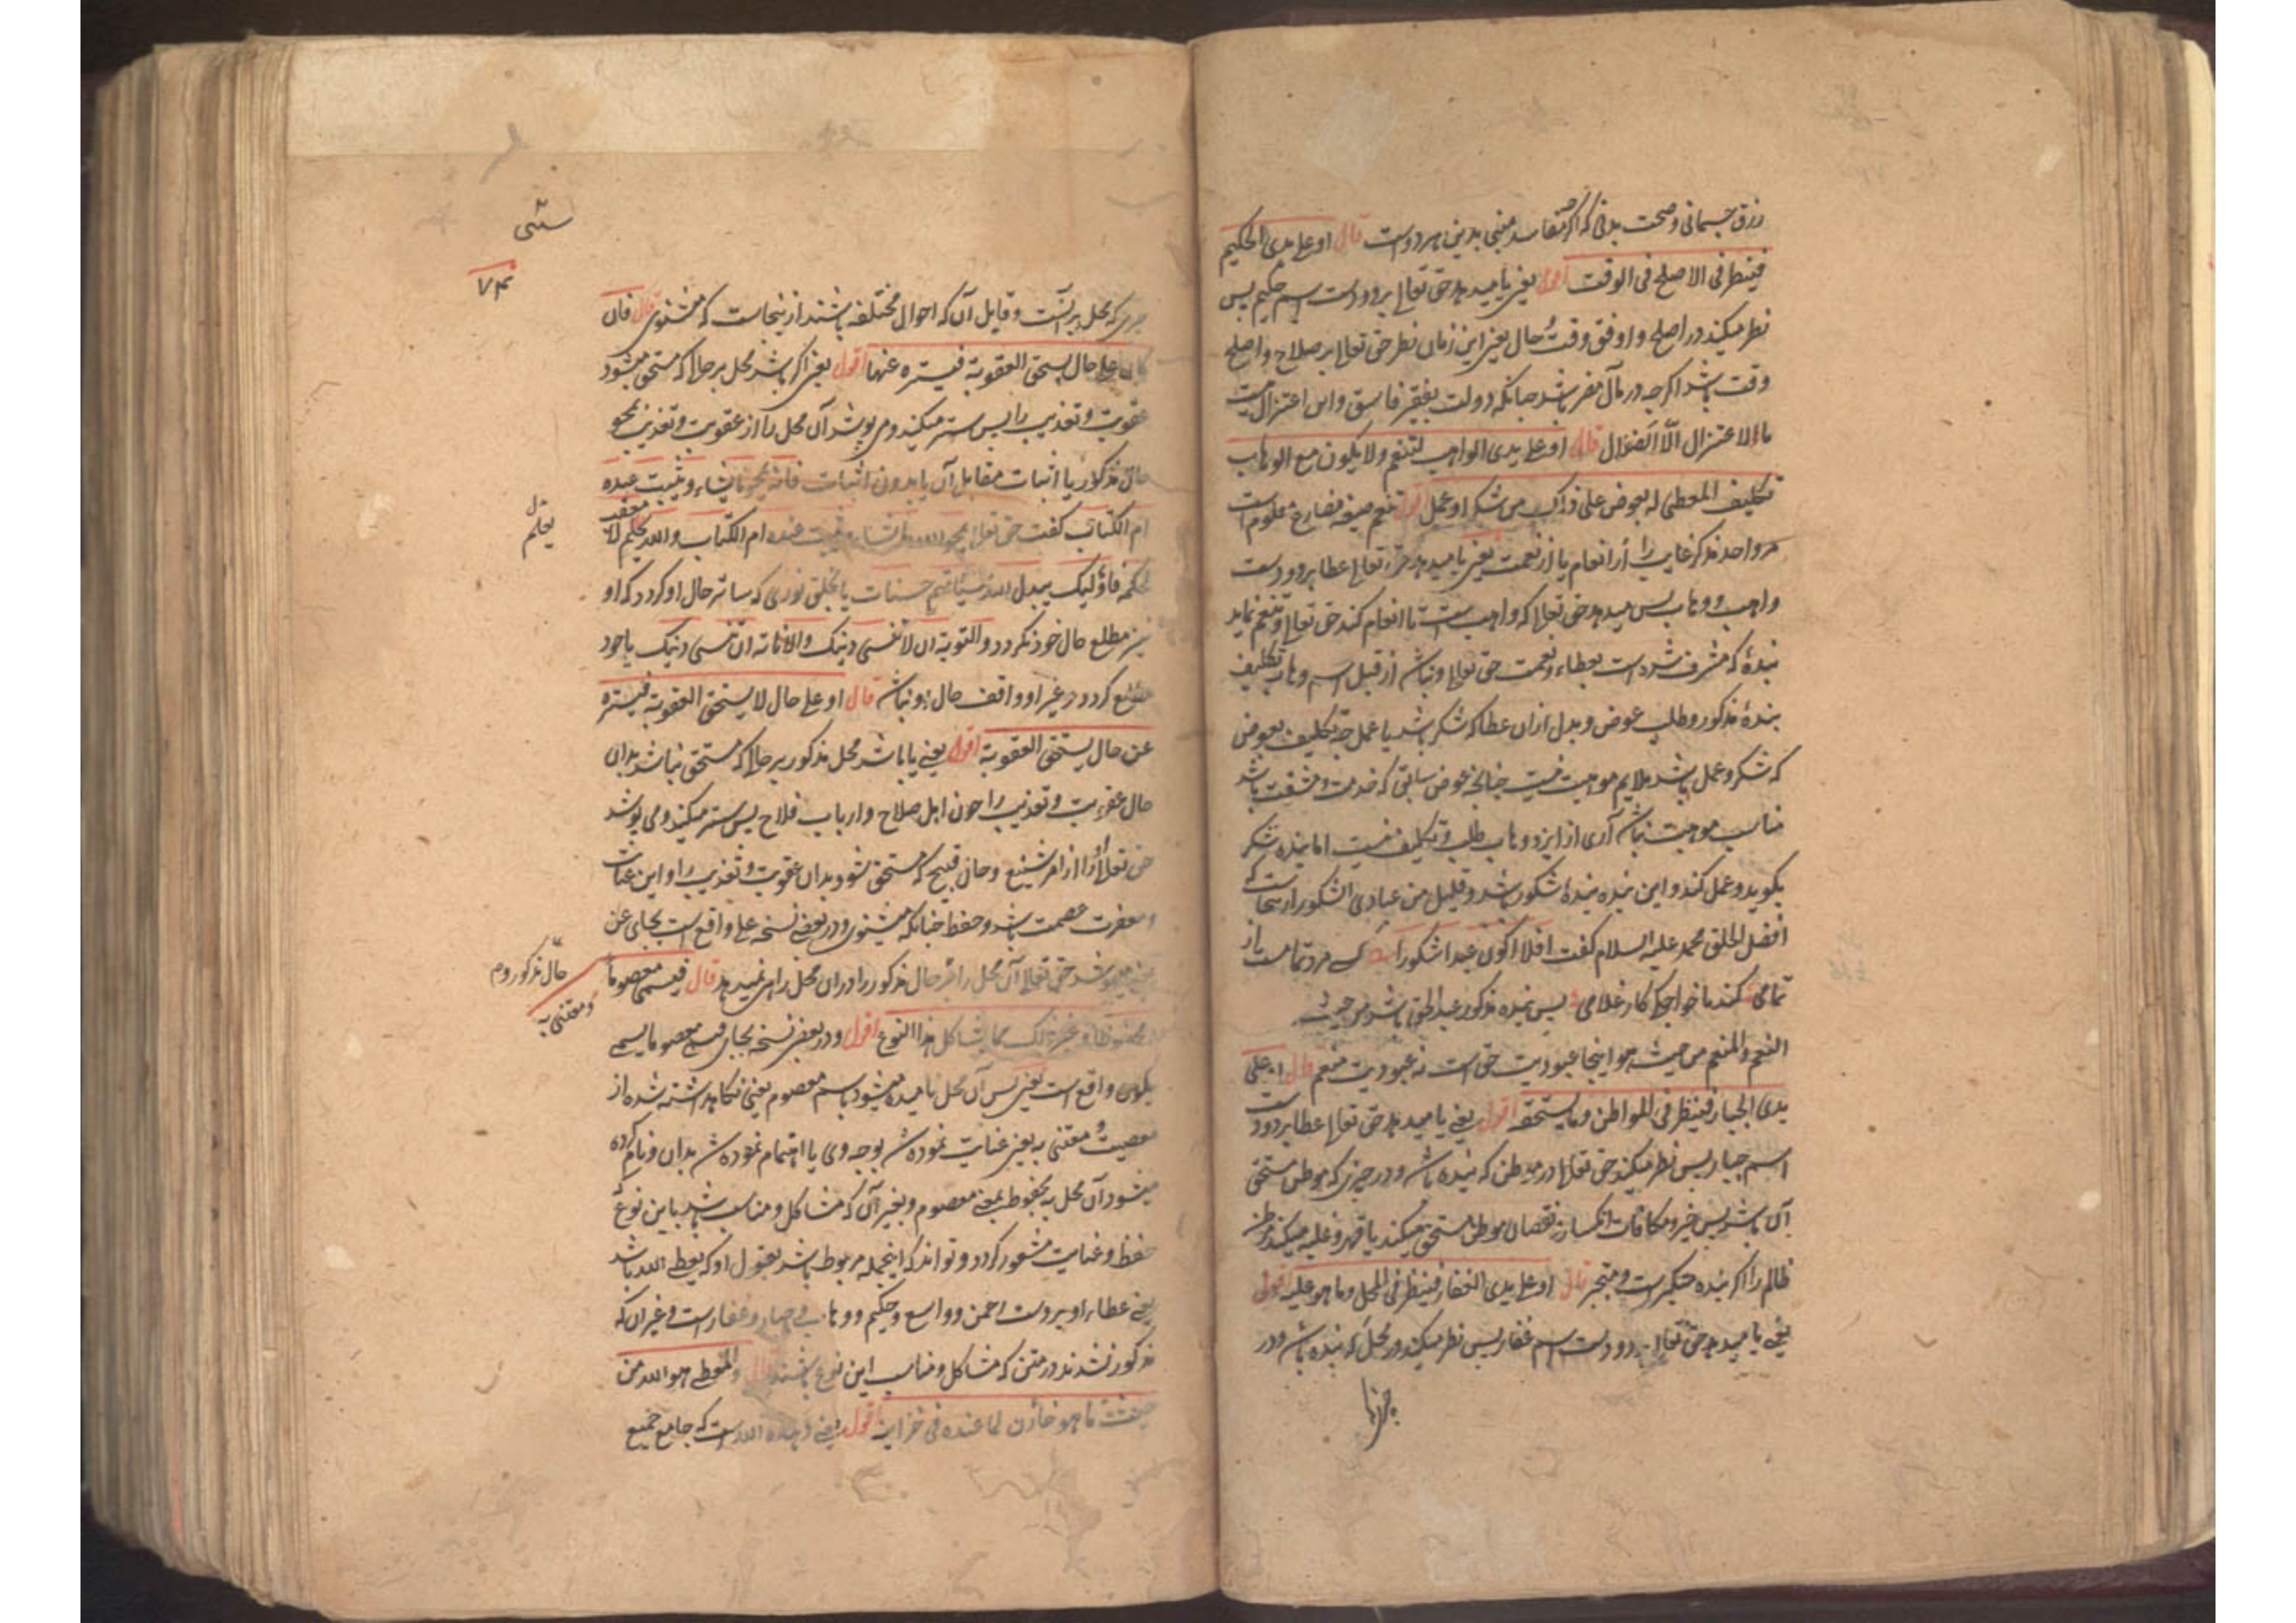 رزق جسمانی و صحت بدنی که اکثر مقاسد مبنی بدین هر دوست قال او علی یدی الحکیم
فینظر فی الاصلح فی الوقت اقول یعنی یا میدهد حق تعالی بر دو دست اسم حکیم پس
نظر میکند در اصلح و اوفق وقت و حال یعنی این زمان نظر حق تعالی بر صلاح و اصلح
وقت باشد اکرچه در مآل مضر باشد چنانکه دولت بفقیر فاسق و این اعتزال نیست
ما الاعتزال الّا الضّوال قال او علی یدی الواهب لتنعم و لا یکون مع الوهاب
تکلیف المعطی له بعوض علی ذلک من شکر او عمل اقول تنعم صیغه مضارع معلوم است
مر واحد مذکر غایب را از انعام یا از نعمت یعنی یا میدهد حق تعالی عطا بر دو دست
واهب و وهاب پس میدهد حق تعالی که واهب است تا انعام کند حق تعالی و تنعم نماید
بندهٔ که مشرف شده است بعطاء و نعمت حق تعالی و نباشد از قبل اسم وهاب تکلیف
بندهٔ مذکور و طلب عوض و بدل از ان عطا که شکر باشد یا عمل چه تکلیف بعوض
که شکر و عمل باشد ملایم موهبت نیست چنانچه عوض سابق که خدمت و مشقت باشد
مناسب موهبت نباشد آری از ایزد وهاب طلب و تکلیف نیست اما بنده شکر
بکوید و عمل کند و این بنده بندهٔ شکور باشد و قلیل من عبادی الشکور ازینجاست که
افضل الخلق محمد علیه السلام کفت افلا اکون عبدا شکورا کسی مرد تمامست از
تمامی کند با خواجکی کار غلامی پس بنده مذکور عبد الحق باشد من حیث
النعم و المنعم من حیث هو اینجا عبودیت حق است نه عبودیت منعم قال او علی
یدی الجبار فینظر فی المواطن و ما یستحقه اقول یعنی یا میدهد حق تعالی عطا بر دو دست
اسم جبار پس نظر میکند حق تعالی در موطن که بنده باشد و در چیزی که موطن مستحق
آن باشد پس جبر و مکافات انکسار و نقصان موطن مستحق میکند یا قهر و غلبه میکند موطن
ظالم را اکر بنده متکبرست و متجبر قال او علی یدی الغفار فینظر فی المحل و ما هو علیه اقول
یعنی یا میدهد حق تعالی بر دو دست اسم غفار پس نظر میکند در محل که بنده باشد و در
چیزی
که محل بر آنست و قابل آن که احوال مختلفه باشند از ینجاست که میشنوی قال فان
کان علی حال یستحق العقوبة فیستره عنها اقول یعنی اکر باشد محل بر حالی که مستحق میشود
عقوبت و تعذیب را پس ستر میکند و می پوشد آن محل را از عقوبت و تعذیب بمحو
حال مذکور یا اثبات مقابل آن یا بدون اثبات فانه یمحو ما یشاء و یثبت عنده
ام الکتاب کفت حق تعالی یمحو الله ما یشاء و یثبت عنده ام الکتاب والله یحکم لا معقب
لحکمه فاولیک یبدل الله سیئاتهم حسنات یا بخلق نوری که ساتر حال او کردد که او
نیز مطلع حال خود نکردد و التوبة ان لا تنسی ذنبک و الانابة ان تنسی ذنبک یا خود
مطلع کردد و غیر او واقف حال او نباشد قال او علی حال لا یستحق العقوبة فیستره
عن حال یستحق العقوبة اقول یعنی یا باشد محل مذکور بر حالی که مستحق نباشد بدان
حال عقوبت و تعذیب را چون اهل صلاح و ارباب فلاح پس ستر میکند و می پوشد
حق تعالی او را از امر شنیع و حال قبیح که مستحق شود بدان عقوبت و تعذیب را و این عنایت
و مغفرت عصمت باشد و حفظ چنانکه میشنوی و در بعضی نسخه علی واقع است بجای عن
حق تعالی آن محل را بر حال مذکور را در ان محل راه نمیدهد قال فیسمی معصوما
و محفوظا و غیر ذلک مما یشاکل هذا النوع اقول و در بعضی نسخه بجای فیسمی معصوما یسمی
واقع است یعنی پس آن محل نامیده میشود باسم معصوم یعنی نکاهداشته شده از
معصیت و معتنی به یعنی عنایت نموده شده بوجه وی یا اهتمام نموده شده بدان و نام کرده
میشود آن محل به محفوظ بمعنی معصوم و بغیر آن که مشاکل و مناسب باشد باین نوع
حفظ و عنایت مشعور کردد و تواند که اینجمله مربوط باشد بقول او که یعطی الله باشد
یعنی عطاء او بر دست رحمن و واسع و حکیم و وهاب و جبار و غفار است و غیر آن که
مذکور نشدند در متن که مشاکل و مناسب این نوع باشند قال والمعطی هو الله من
حیث ما هو خازن لما عنده فی خزاینه اقول یعنی دهنده الله است که جامع جمیع
شی
یحکم
حال مذکور دوم
و معتنی به